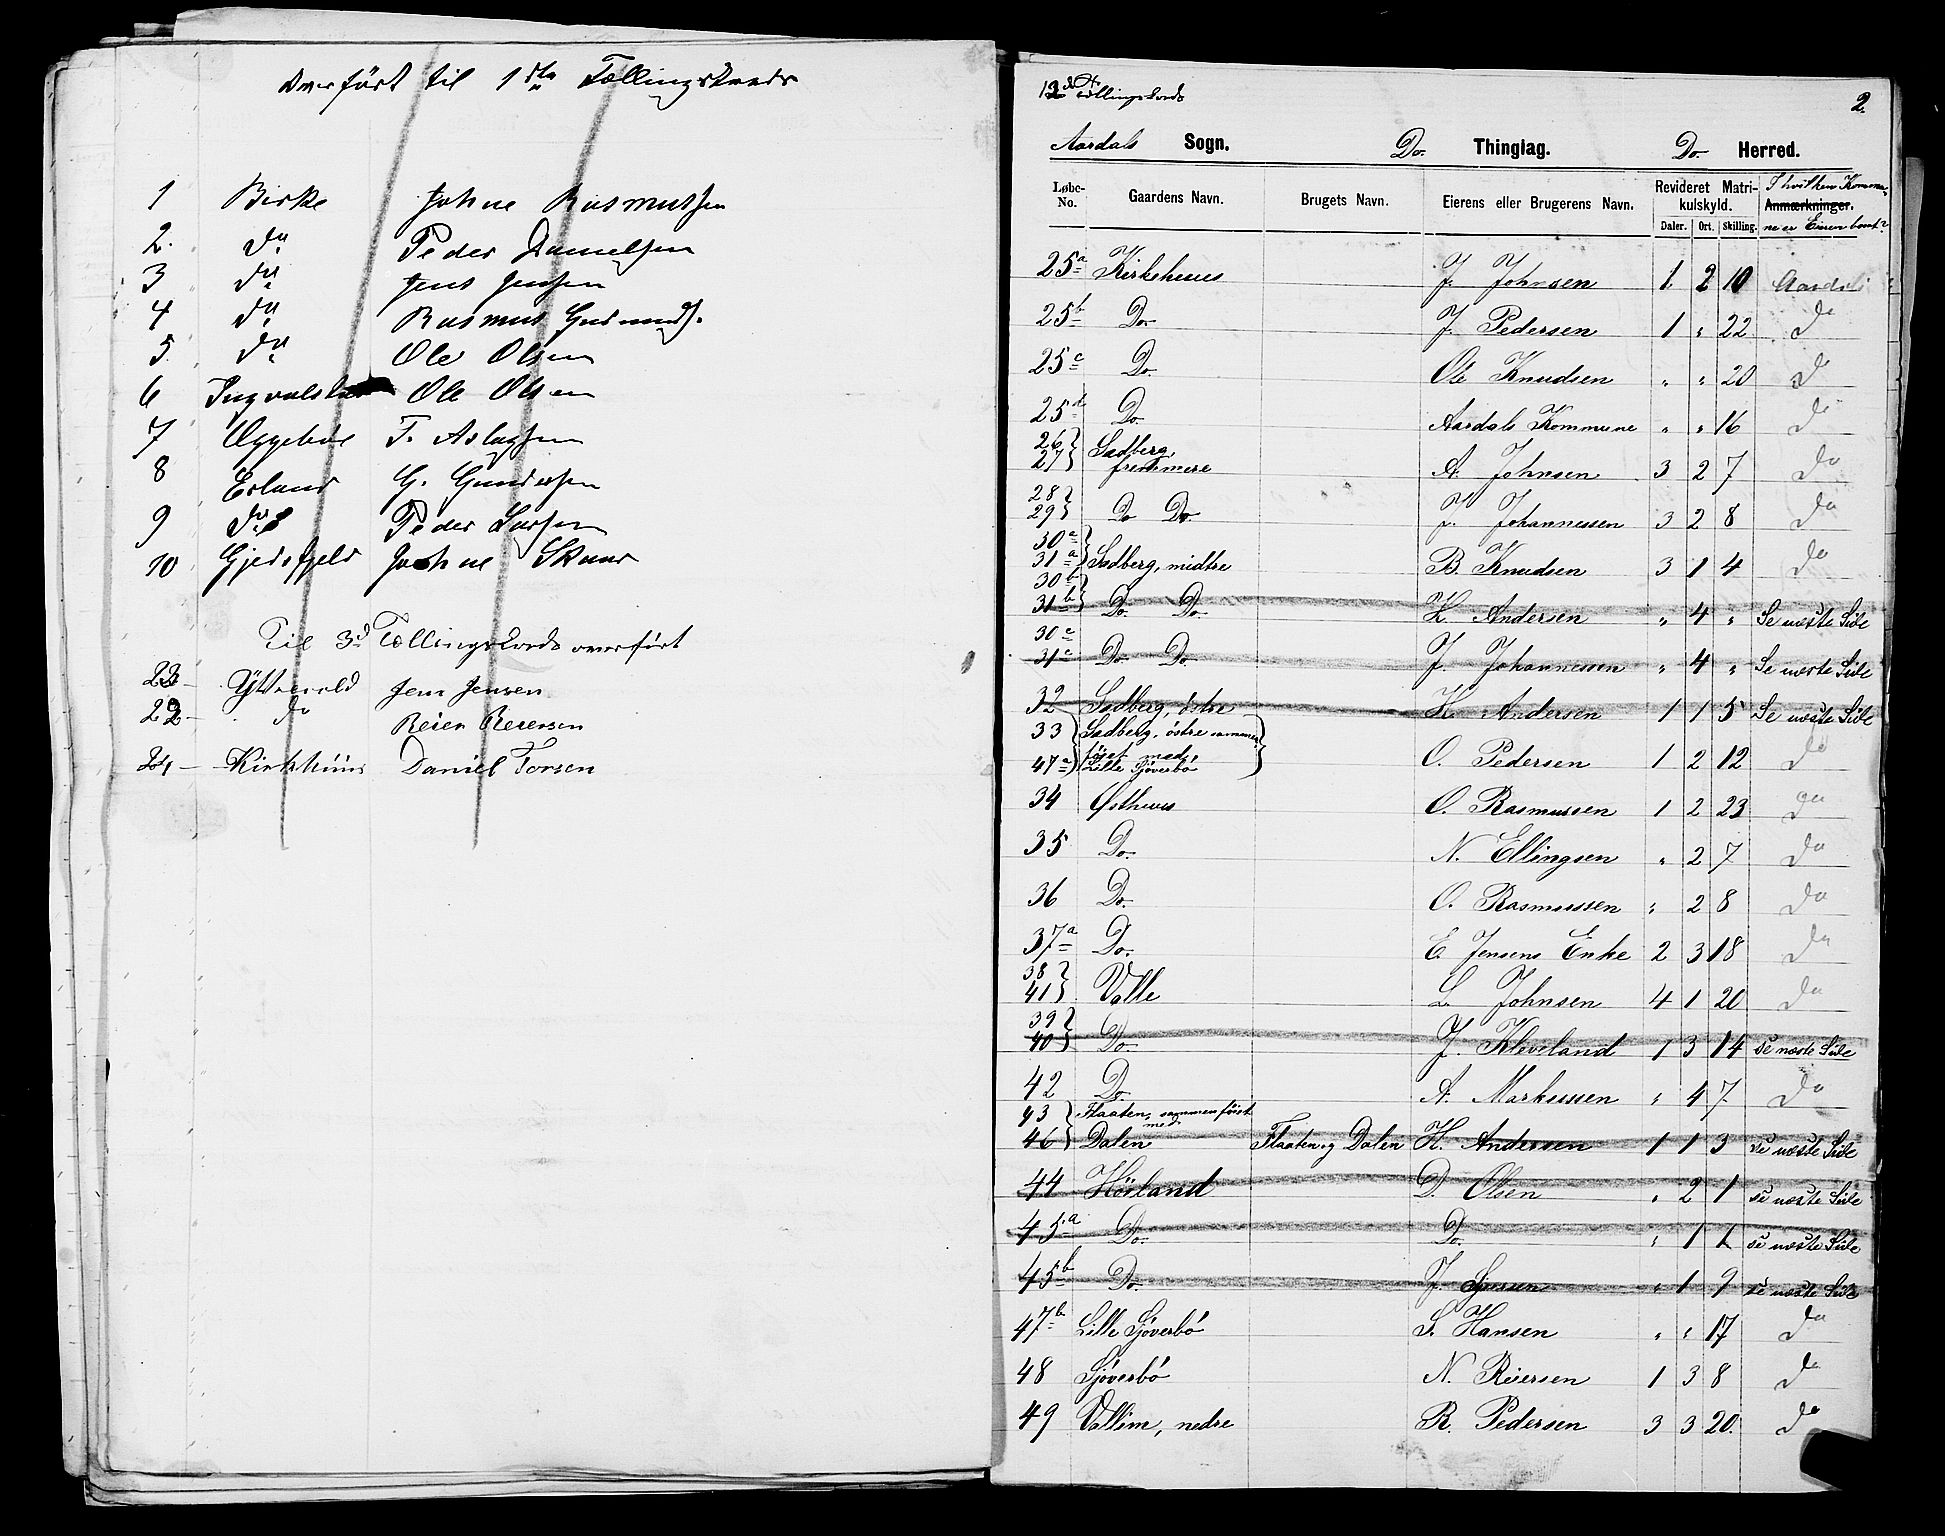 overført til 1ste Tællingskreds
1 Birke Johne Rasmussen
2. do Peder Danielsen
3 do Jens Jensen
4 do Rasmus Gudmunds.
5 do Ole Olsen
6 Ole Olsen
7 T. Aslagsen
8 Erland G. Gundersen
9 do Peder Larsen
10 Gjedrefjeld Johne
Til 3d Tællingskreds overført
23 Jens Jensen
22 do Reier Reiersen
24 Kirkhuus Daniel Torsen
Tællingskreds
2.
Aardals Sogn. Do. Thinglag. Do. Herred.
Løbe-No. Gaardens Navn. Brugets Navn. Eierens eller Brugerens Navn. Revideret Matrikulskyld. Daler. Ort. Skilling. Anmærkninger. I hvilken Kommune er Eieren bosat?
25a Kirkehuus J. Johnsen 1 2 10 Aardal
25b Do. J. Pedersen 1 " 22 do
25c Do. Ole Knudsen " " 20 do
25d Do. Aardals Kommune " " 16 do
26 27 Sadberg, fremmere A. Johnsen 3 2 7 do
28 29 Do Do. J. Johannessen 3 2 8 do
30a 31a Sadberg, midtre B. Knudsen 3 1 4 do
30b 31b Do. Do. H. Andersen " 4 " Se næste Side
30c 31c Do Do J. Johannessen " 4 " Se næste Side
32 Sadberg, østre H. Andersen 1 1 5 Se næste Side
33 47a Sadberg, østre sammenføiet med Lille Sjøverbø O. Pedersen 1 2 12 do
34 Østhuus O. Rasmussen 1 2 23 do
35 Do. N. Ellingsen " 2 7 do
36 Do. O. Rasmussen " 2 8 do
37a Do. E. Jensens Enke 2 3 18 do
38 41 Valle L. Johnsen 4 1 20 do
39 40 Do. J. Kleveland 1 3 14 se næste Side
42 Do. A. Markussen " 4 7 do
43 46 Flaaten, sammenføiet med Dalen Flaaten og Dalen H. Andersen 1 1 3 se næste Side
44 Høiland D. Olsen " 2 1 se næste Side
45a Do. Do. " 1 1 se næste Side
45b Do. J. " 1 9 se næste Side
47b Lille Sjøverbø S. Hansen " " 17 do
48 Sjøverbø N. Reiersen 1 3 8 do
49 Vallim, nedre R. Pedersen 3 3 20. do